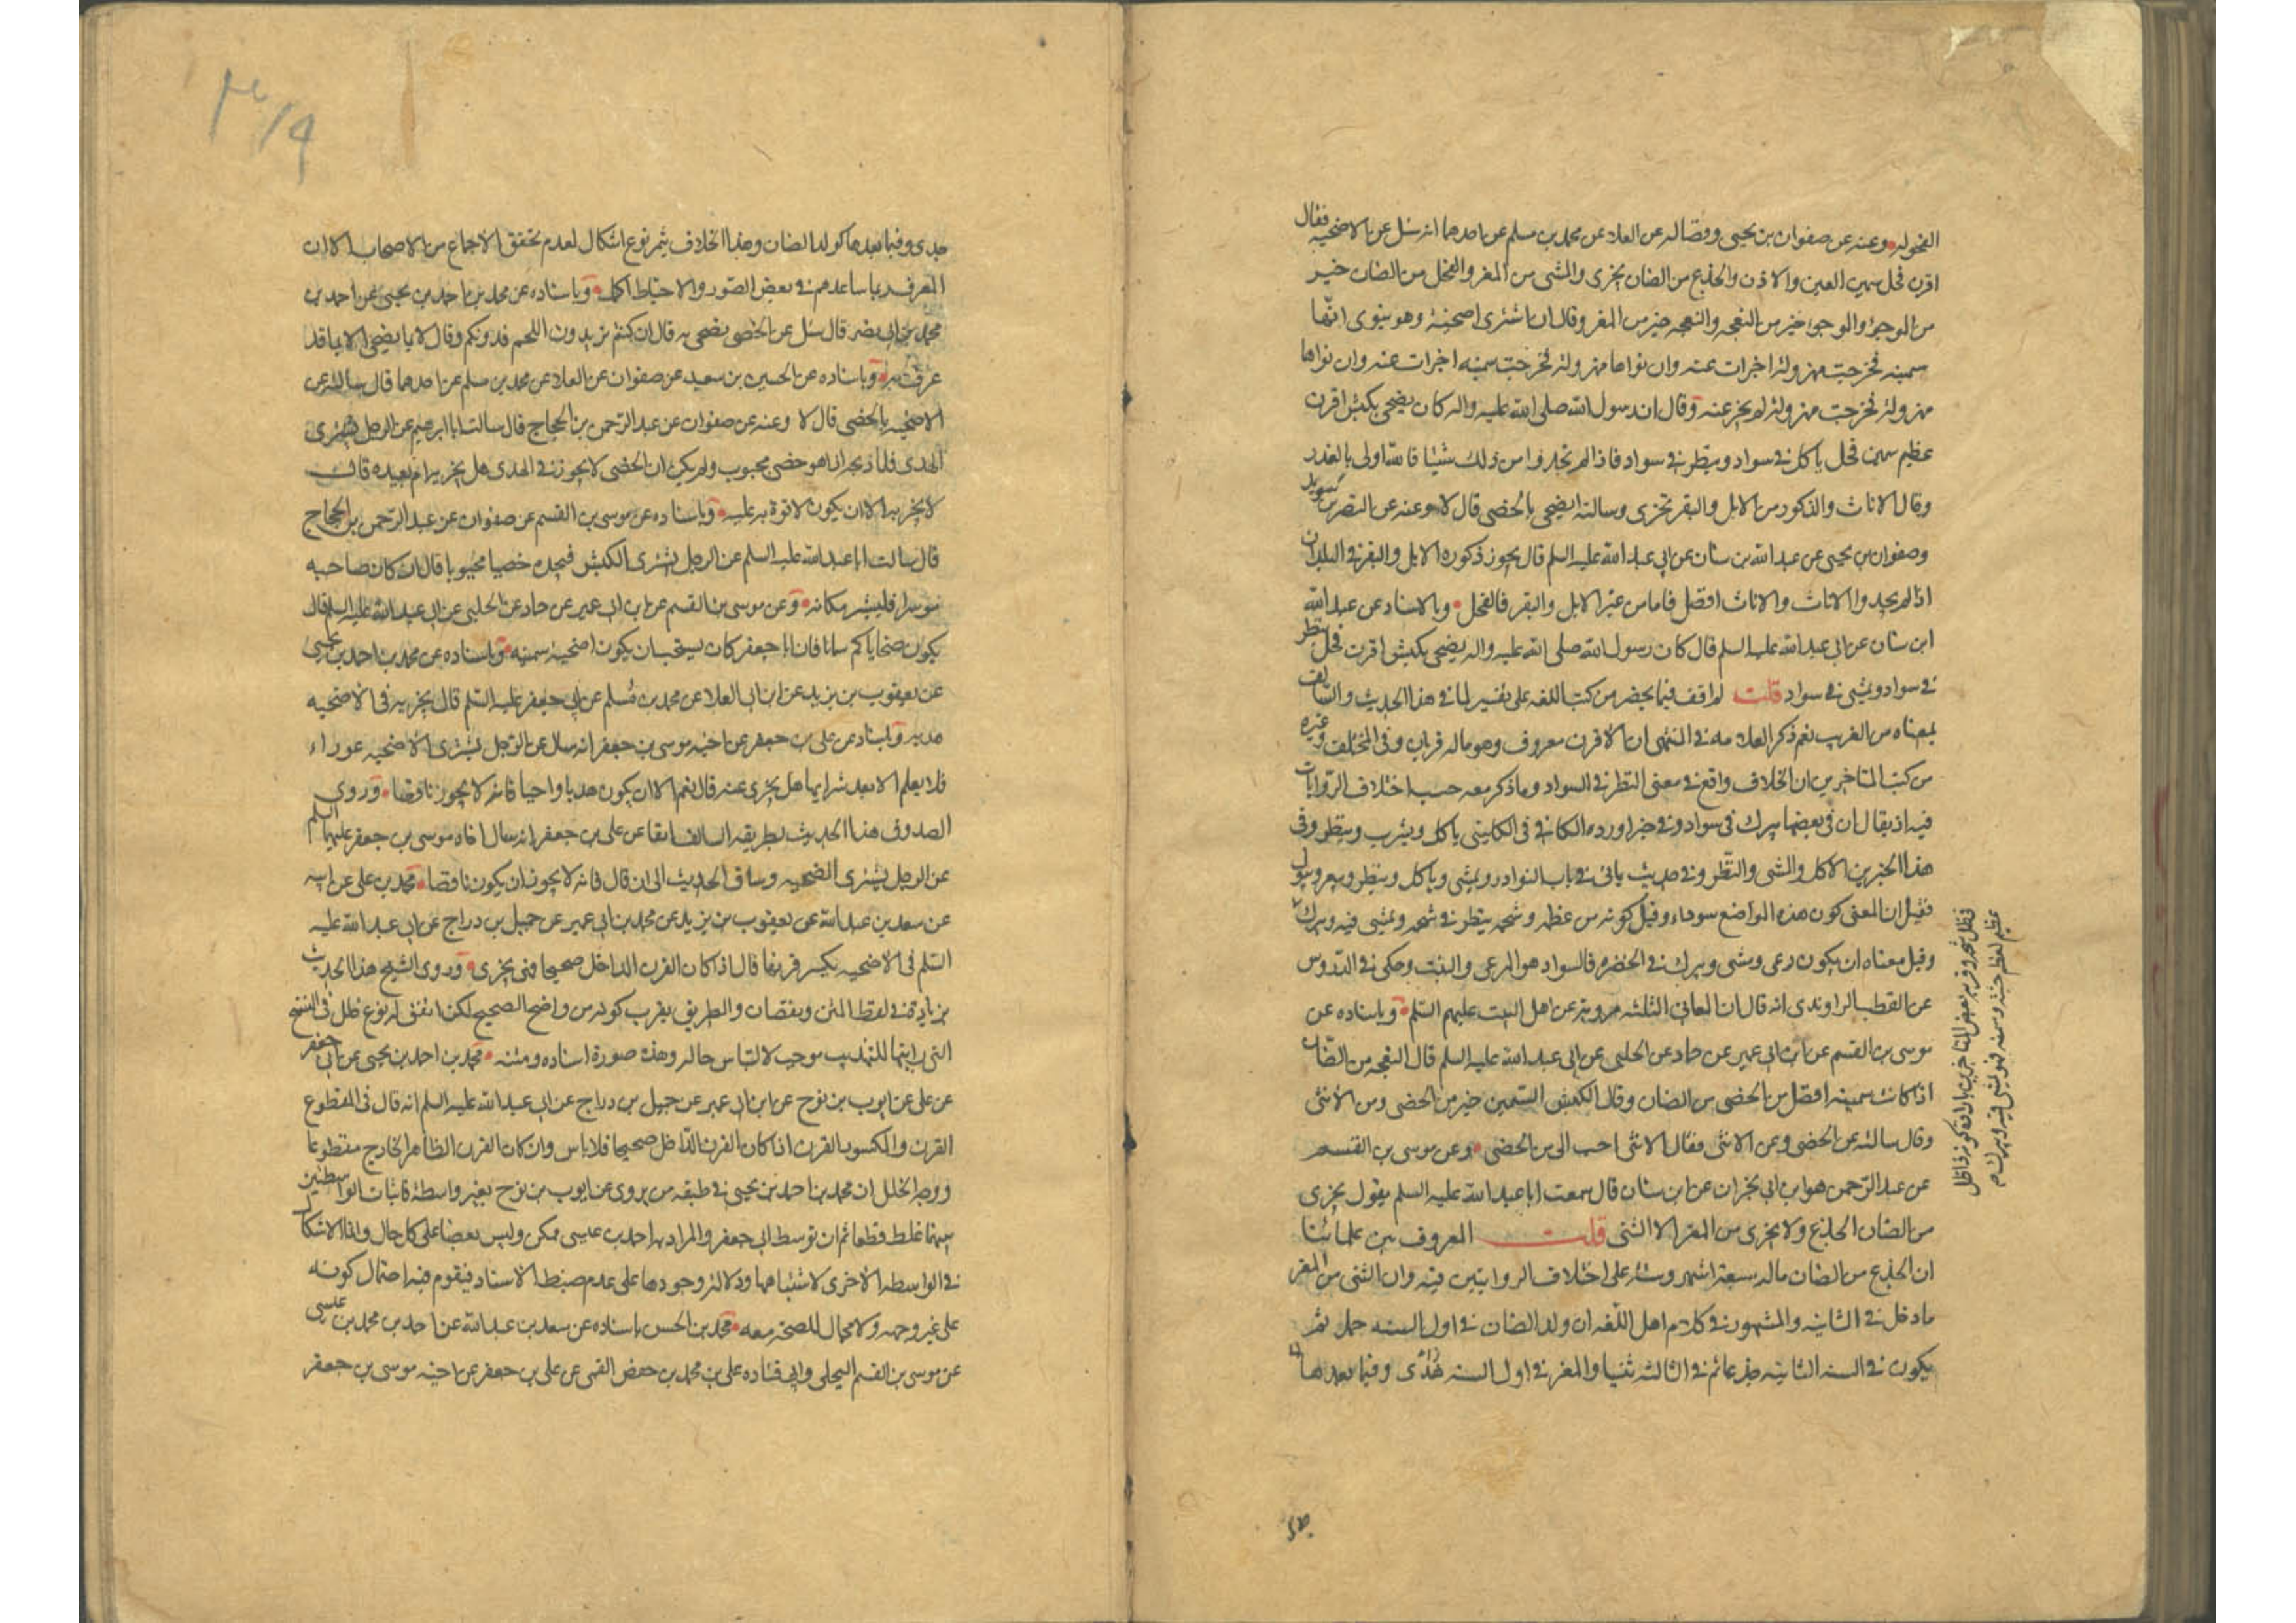 الفحوله وعنه عن صفوان بن يحيى وفضاله عن العلاء عن محمد بن مسلم عن احدهما انه سئل عن الاضحية فقال
اقرن فحل سمين العين والاذن والجذع من الضان يجزى والثنى من المعز والفحل من الضان خير
من الموجوء والموجوء خير من النعجه والنعجه خير من المعز وقال ان اشترى اضحية وهو ينوى انها
سمينه فخرجت مهزولة اجزات عنه وان نواها مهزولة فخرجت سمينه اجزات عنه وان نواها
مهزولة فخرجت مهزولة لم يجز عنه وقال ان رسول الله صلى الله عليه واله كان يضحى بكبش اقرن
عظيم سمين فحل ياكل فى سواد وينظر فى سواد فاذا لم تجدوا من ذلك شيئا فالله اولى بالعذر
وقال الاناث والذكور من الابل والبقر تجزى وسالته ايضحى بالخصى قال لا وعنه عن النضر بن سويد
وصفوان بن يحيى عن عبد الله بن سنان عن ابى عبد الله عليه السلم قال يجوز ذكوره الابل والبقر فى البلدان
اذا لم يجدوا الاناث والاناث افضل فاما من غير الابل والبقر فالفحل وبالاسناد عن عبد الله
ابن سنان عن ابى عبد الله عليه السلم قال كان رسول الله صلى الله عليه واله يضحى بكبش اقرن فحل ينظر
فى سواد ويمشى فى سواد قلت لم اقف فيما يحضر من كتب اللغه على تفسير لما فى هذا الحديث والسالف
بمعناه من الغريب نعم ذكر العلامه فى المنتهى ان الاقرن معروف وهو ماله قرنان وفى المختلف وغيره
من كتب المتاخرين ان الخلاف واقع فى معنى النظر فى السواد وما ذكر معه حسب اختلاف الروايات
فيه اذ يقال ان فى بعضها يبرك فى سواد وفى خبر اورده الكلينى فى الكافى ياكل ويشرب وينظر وفى
هذا الخبرين الاكل والمشى والنظر وفى حديث ياتى فى باب النوادر ويمشى وياكل وينظر ويبعر ويبول
فقيل ان المعنى كون هذه المواضع سوداء وقيل كونه من عظمه وشحمه ينظر فى شحمه ويمشى فيه ويبرك
وقيل معناه ان يكون رعى ومشى وبرك فى الخضره فالسواد هو المرعى والنبت وحكى فى الدروس
عن القطب الراوندى انه قال ان المعانى الثلثه مرويه عن اهل البيت عليهم السلم وباسناده عن
موسى بن القسم عن ابن ابى عمير عن حماد عن الحلبى عن ابى عبد الله عليه السلم قال النعجه من الضان
اذا كانت سمينه افضل من الخصى من الضان وقال الكبش السمين خير من الخصى ومن الانثى
وقال سالته عن الخصى وعن الانثى فقال الانثى احب الى من الخصى وعن موسى بن القسم
عن عبد الرحمن هو ابن ابى نجران عن ابن سنان قال سمعت ابا عبد الله عليه السلم يقول يجزى
من الضان الجذع ولا يجزى من المعز الا الثنى قلت المعروف بين علمائنا
ان الجذع من الضان ماله سبعة اشهر وستة على اختلاف الروايتين فيه وان الثنى من المعز
ما دخل فى الثانيه والمشهور فى كلام اهل اللغه ان ولد الضان فى اول السنه حمل ثم
يكون فى السنه الثانيه جذعا ثم فى الثالثه ثنيا والمعز فى اول السنه جدى وفيما بعدها
جدى وفيما بعدها كولد الضان وهذا الخلاف يثمر نوع اشكال لعدم تحقق الاجماع من الاصحاب الا ان
العرف ربما ساعدهم فى بعض الصور والاحتياط اكمل وباسناده عن محمد بن احمد بن يحيى عن احمد بن
محمد بن ابى نصر قال سئل عن الخصى يضحى به قال ان كنتم تريدون اللحم فدونكم وقال لا يضحى الا بما قد
عرف به وباسناده عن الحسين بن سعيد عن صفوان عن العلاء عن محمد بن مسلم عن احدهما قال سالته عن
الاضحيه بالخصى قال لا وعنه عن صفوان عن عبد الرحمن بن الحجاج قال سالت ابا ابرهيم عن الرجل يشترى
الهدى فلما ذبحه اذا هو خصى مجبوب ولم يكن ان الخصى لا يجوز فى الهدى هل يجزيه ام يعيده قال
لا يجزيه الا ان يكون لا قوة به عليه وباسناده عن موسى بن القسم عن صفوان عن عبد الرحمن بن الحجاج
قال سالت ابا عبد الله عليه السلم عن الرجل يشترى الكبش فيجده خصيا مجبوبا قال ان كان صاحبه
موسرا فليشتر مكانه وعن موسى بن القسم عن ابن ابى عمير عن حماد عن الحلبى عن ابى عبد الله عليه السلم قال
يكون ضحاياكم سمانا فان ابا جعفر كان يستحب ان يكون اضحيته سمينه وباسناده عن محمد بن احمد بن يحيى
عن يعقوب بن يزيد عن ابن ابى العلاء عن محمد بن مسلم عن ابى جعفر عليه السلم قال يجزيه فى الاضحيه
هديه وباسناده عن على بن جعفر عن اخيه موسى بن جعفر انه سال عن الرجل يشترى الاضحيه عوراء
فلا يعلم الا بعد شرايها هل يجزى عنه قال نعم الا ان يكون هديا واجبا فانه لا يجوز ناقصا وروى
الصدوق هذا الحديث بطريقه السالف انفا عن على بن جعفر انه سال اخاه موسى بن جعفر عليهما السلم
عن الرجل يشترى الضحيه وساق الحديث الى ان قال فانه لا يجوز ان يكون ناقصا محمد بن على عن ابيه
عن سعد بن عبد الله عن يعقوب بن يزيد عن محمد بن ابى عمير عن جميل بن دراج عن ابى عبد الله عليه
السلم فى الاضحيه يكسر قرنها قال اذا كان القرن الداخل صحيحا فهى يجزى وروى الشيخ هذا الحديث
بزيادة فى لفظ المتن ونقصان والطريق يقرب كونه من واضح الصحيح لكن اتفق له نوع خلل فى النسخ
التى رايتها للتهذيب موجب لالتباس حاله وهذه صورة اسناده ومتنه محمد بن احمد بن يحيى عن ابى جعفر
عن على عن ايوب بن نوح عن ابن ابى عمير عن جميل بن دراج عن ابى عبد الله عليه السلم انه قال فى المقطوع
القرن والمكسور القرن اذا كان القرن الداخل صحيحا فلا باس وان كان القرن الظاهر الخارج مقطوعا
ووجه الخلل ان محمد بن احمد بن يحيى فى طبقه من يروى عن ايوب بن نوح بغير واسطة فاثبات الواسطتين
بينهما غلط قطعا ثم ان توسط ابى جعفر والمراد به احمد بن عيسى ممكن وليس بعضا على كل حال وانما الاشكال
فى الواسطه الاخرى لاشتباهها ودلالة وجودها على عدم ضبط الاسناد فيقوم فيه احتمال كونه
على غير وجهه ولا مجال للصحة معه محمد بن الحسن باسناده عن سعد بن عبد الله عن احمد بن محمد بن عيسى
عن موسى بن القسم البجلى وابى قتاده على بن محمد بن حفص القمى عن على بن جعفر عن اخيه موسى بن جعفر